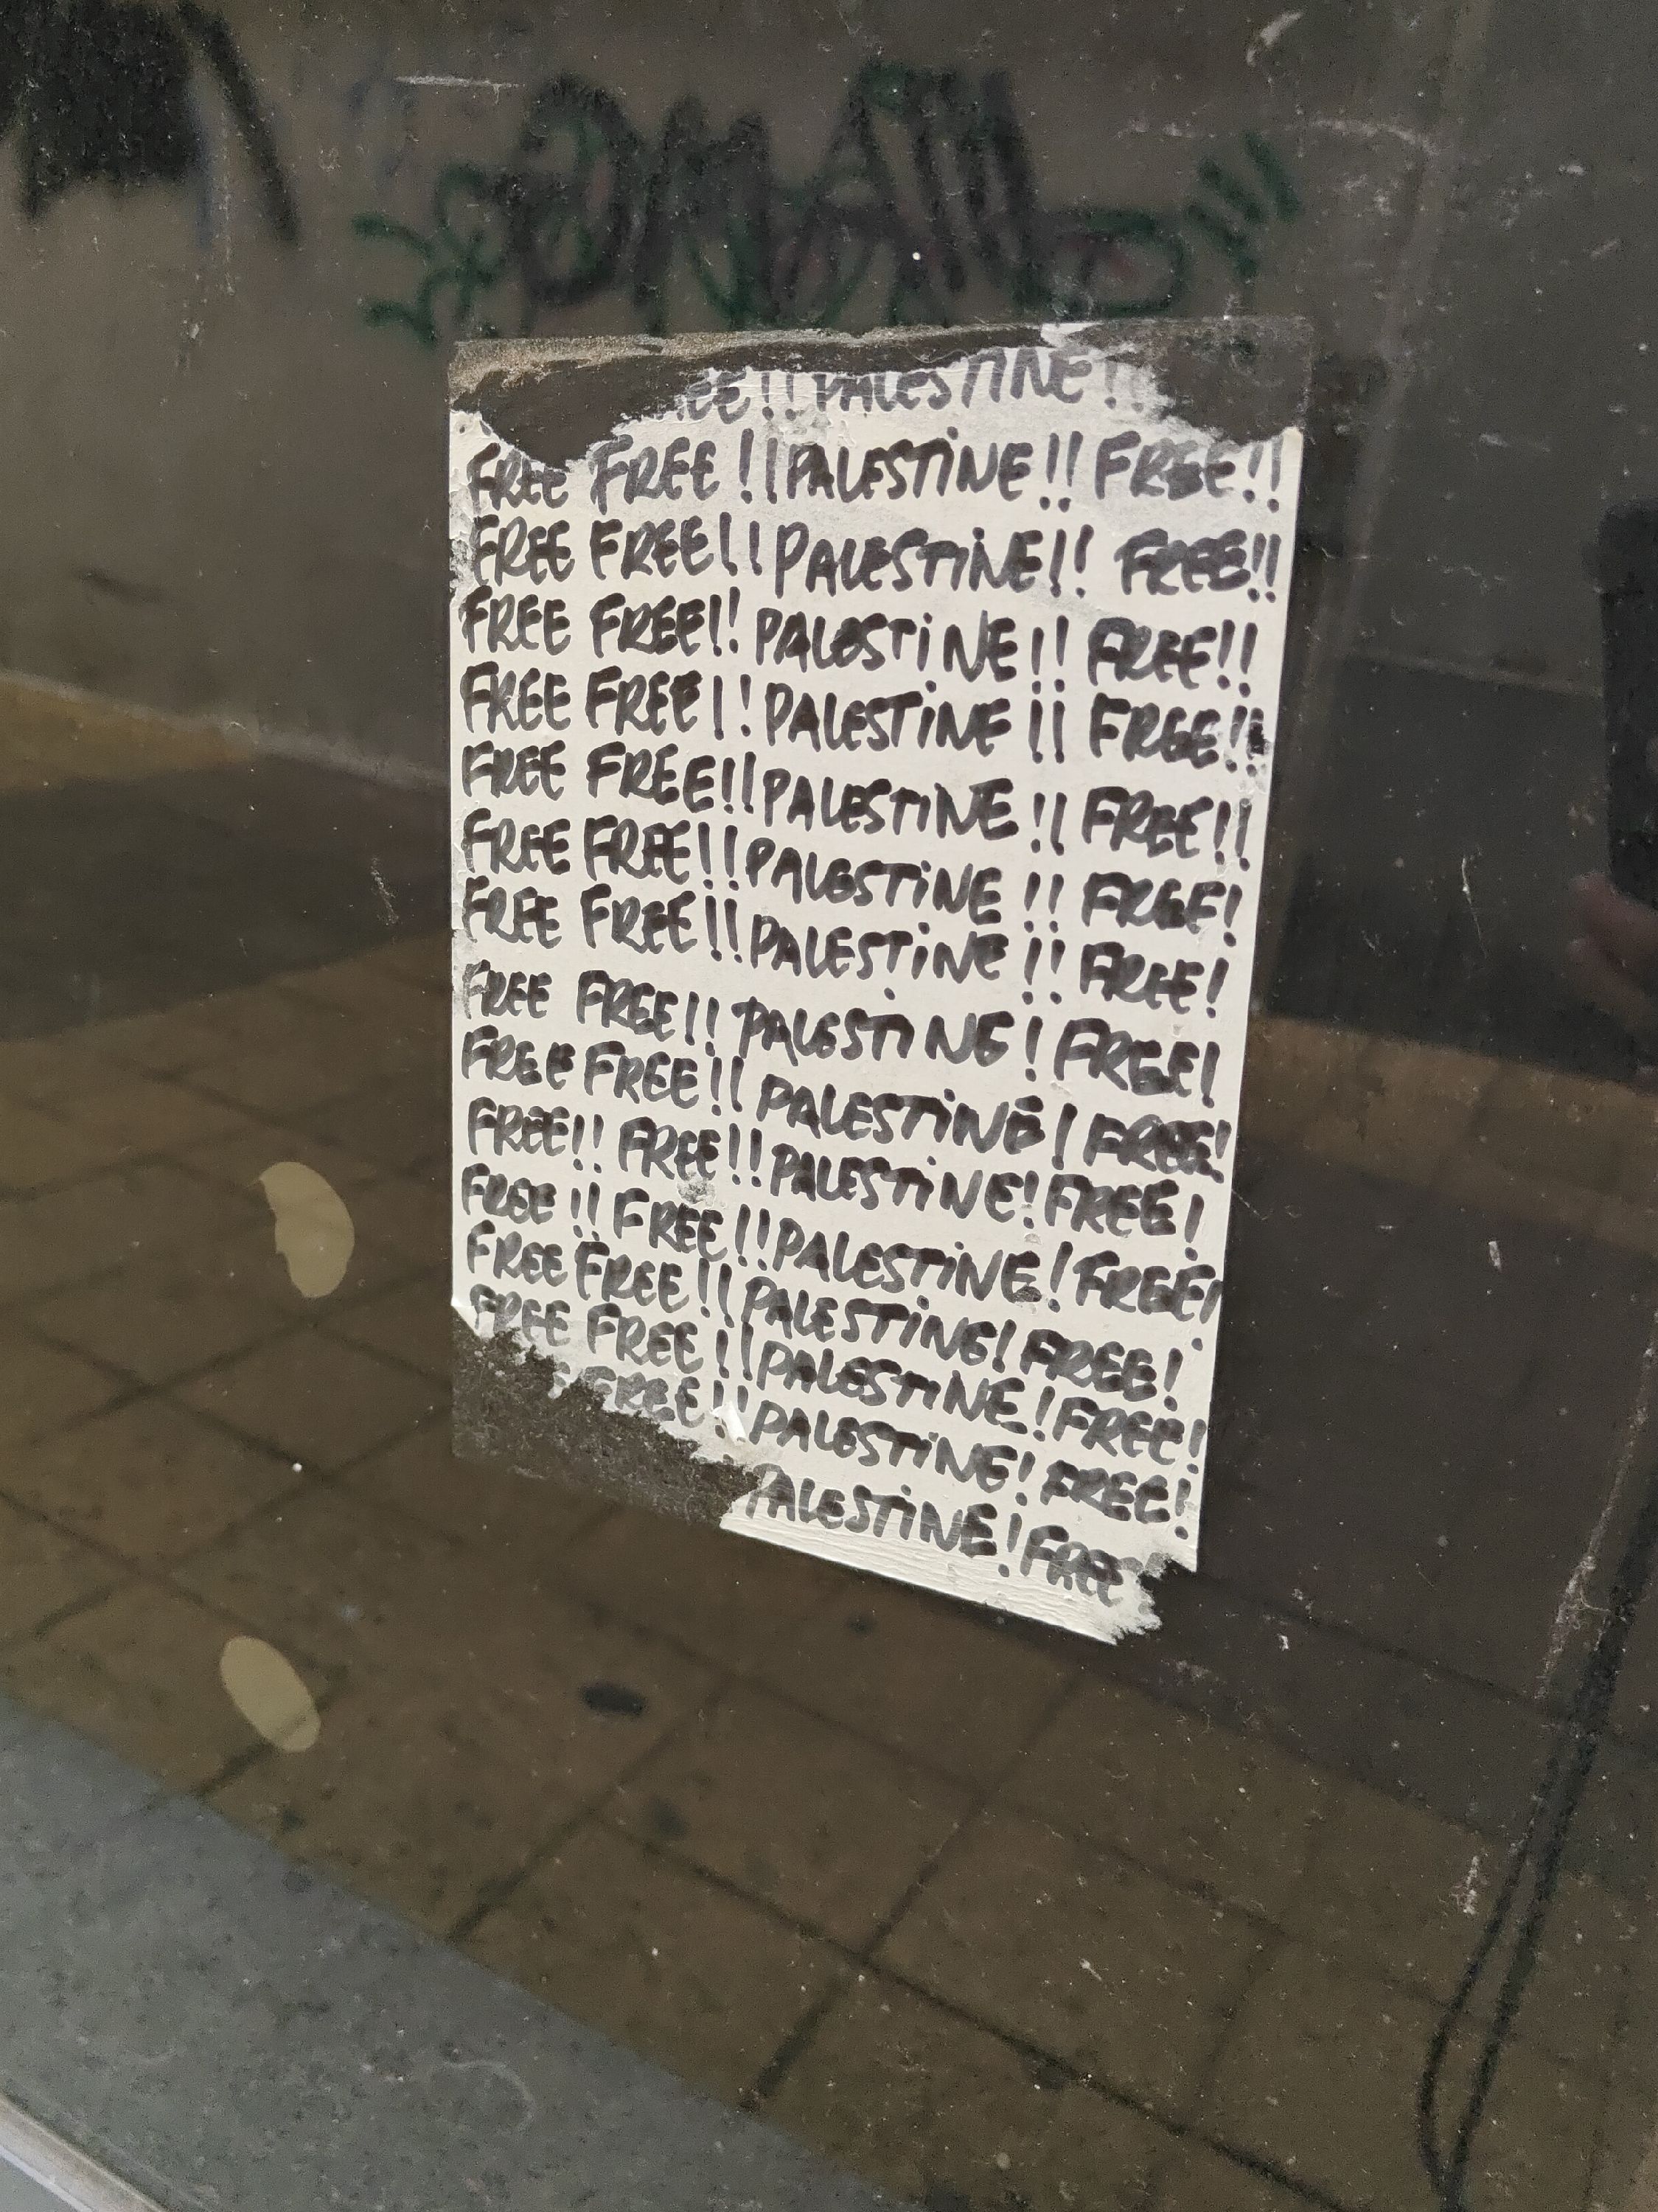 !! PALESTINE!
FREE FREE !! PALESTINE !! FREE!!
FREE FREE!! PALESTINE!! FREE!!
FREE FREE!! PALESTINE!! FREE!!
FREE FREE!! PALESTINE !! FREE!!
FREE FREE!! PALESTINE !! FREE!!
FREE FREE!! PALESTINE !! FREE!
FREE FREE!! PALESTINE !! FREE!
FREE FREE!! PALESTINE! FREE!
FREE FREE!! PALESTINE! FREE!
FREE!! FREE!! PALESTINE! FREE!
FREE !! FREE!! PALESTINE! FREE!
FREE FREE!! PALESTINE! FREE!
FREE FREE!! PALESTINE! FREE!
FREE!! PALESTINE! FREE!
PALESTINE! FREE